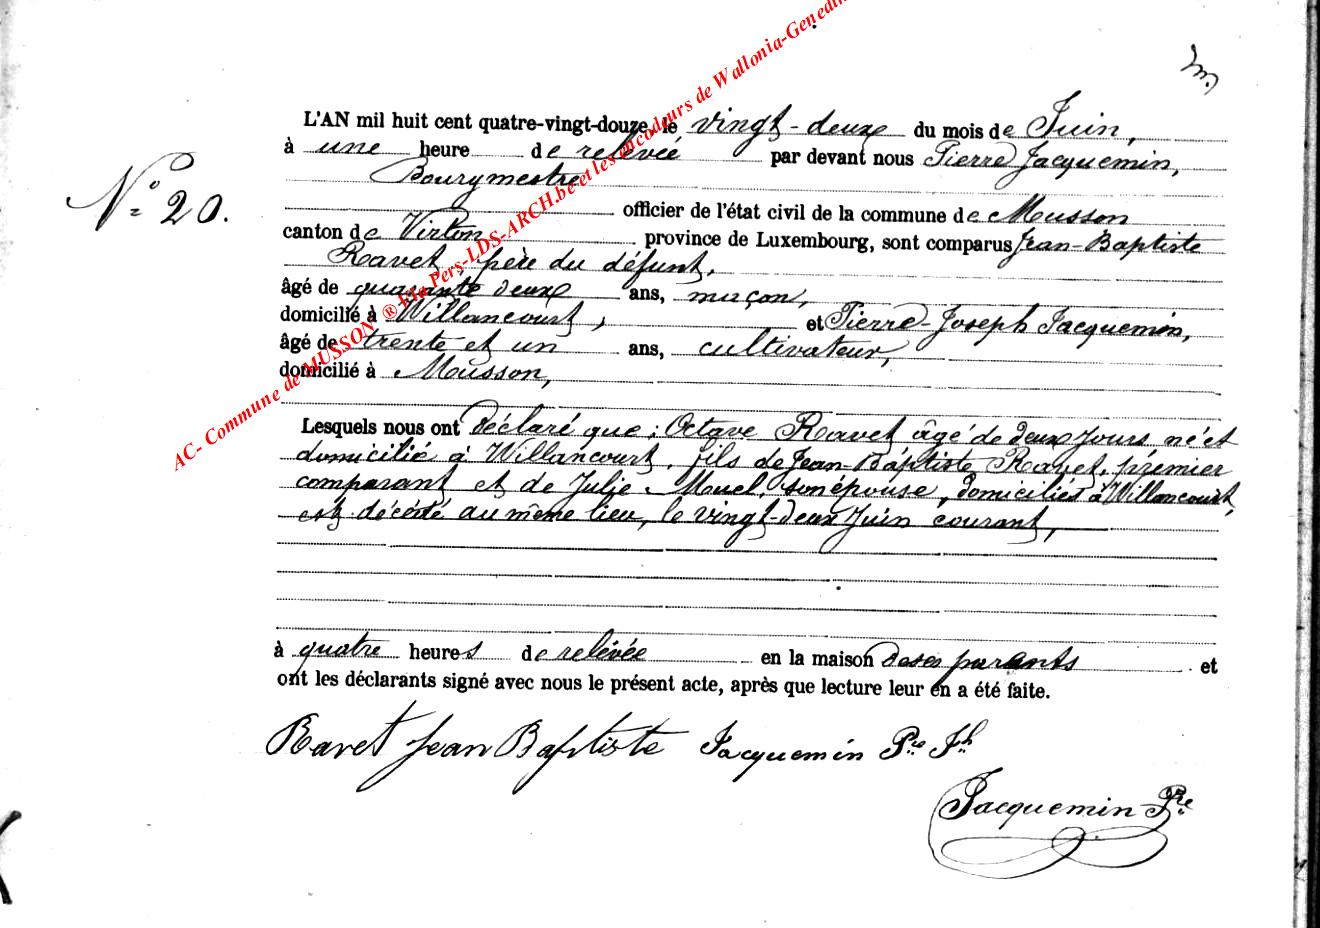 L'AN mil huit cent quatre-vingt-douze, le vingt-deux du mois de Juin,
à une heure de relevée par devant nous Pierre Jacquemin,
Bourgmestre
N° 20.
officier de l'état civil de la commune de Musson
canton de Virton province de Luxembourg, sont comparus Jean-Baptiste
Ravet, père du défunt,
âgé de quarante deux ans, maçon,
domicilié à Willancourt, et Pierre-Joseph Jacquemin,
âgé de trente et un ans, cultivateur,
domicilié à Musson,
Lesquels nous ont déclaré que; Octave Ravet âgé de deux jours né et
domicilié à Willancourt, fils de Jean-Baptiste Ravet, premier
comparant et de Julie Muel, son épouse, domiciliés à Willancourt,
est décédé au même lieu, le vingt-deux Juin courant,
à quatre heures de relevée en la maison de ses parents et
ont les déclarants signé avec nous le présent acte, après que lecture leur en a été faite.
Ravet Jean Baptiste Jacquemin Pre Jh
Jacquemin Pre
AC- Commune de MUSSON ® Ela Pers-LDS-ARCH.be et les encodeurs de Wallonia-Genedin